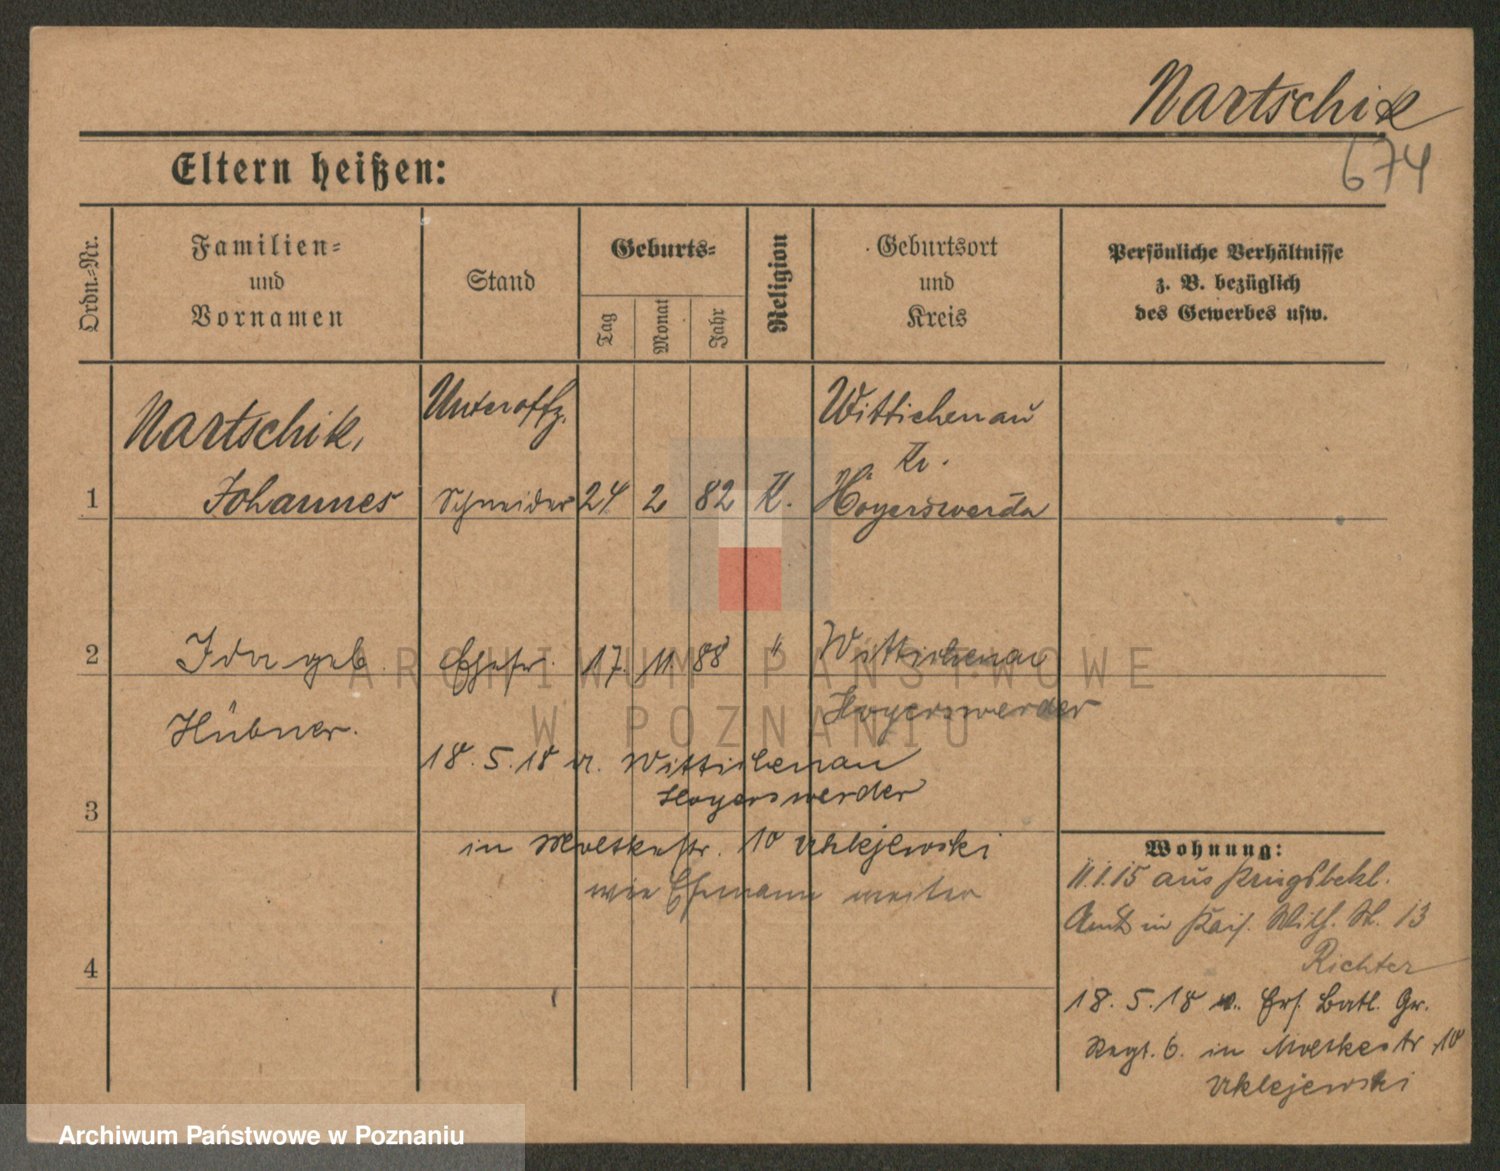 Nartschik
674
Eltern heißen:
Ordn.-Nr.
Familien-
und
Vornamen
Stand
Geburts-
Tag
Monat
Jahr
Religion
Geburtsort
und
Kreis
Persönliche Verhältnisse
z. B. bezüglich
des Gewerbes usw.
Unteroffz.
Wittichenau
Nartschik,
Kr.
1 Johannes Schneider 24 2 82 K. Hoyerswerda
2 Ida geb. Ehefr. 17. 11. 88 " Wittichenau
Hübner. Hoyerswerder
18.5.18 v. Wittichenau
Hoyerswerder
3
in Moltkestr. 10 Uklejewski
wie Ehemann weiter
4
Wohnung:
11.1.15 aus Kriegsbekl.
Amt in Kais. Wilh. St. 13
Richter
18.5.18 v. Ers. Batl. Gr.
Regt. 6. in Moltkestr. 10
Uklejewski
ARCHIWUM PAŃSTWOWE
W POZNANIU
Archiwum Państwowe w Poznaniu